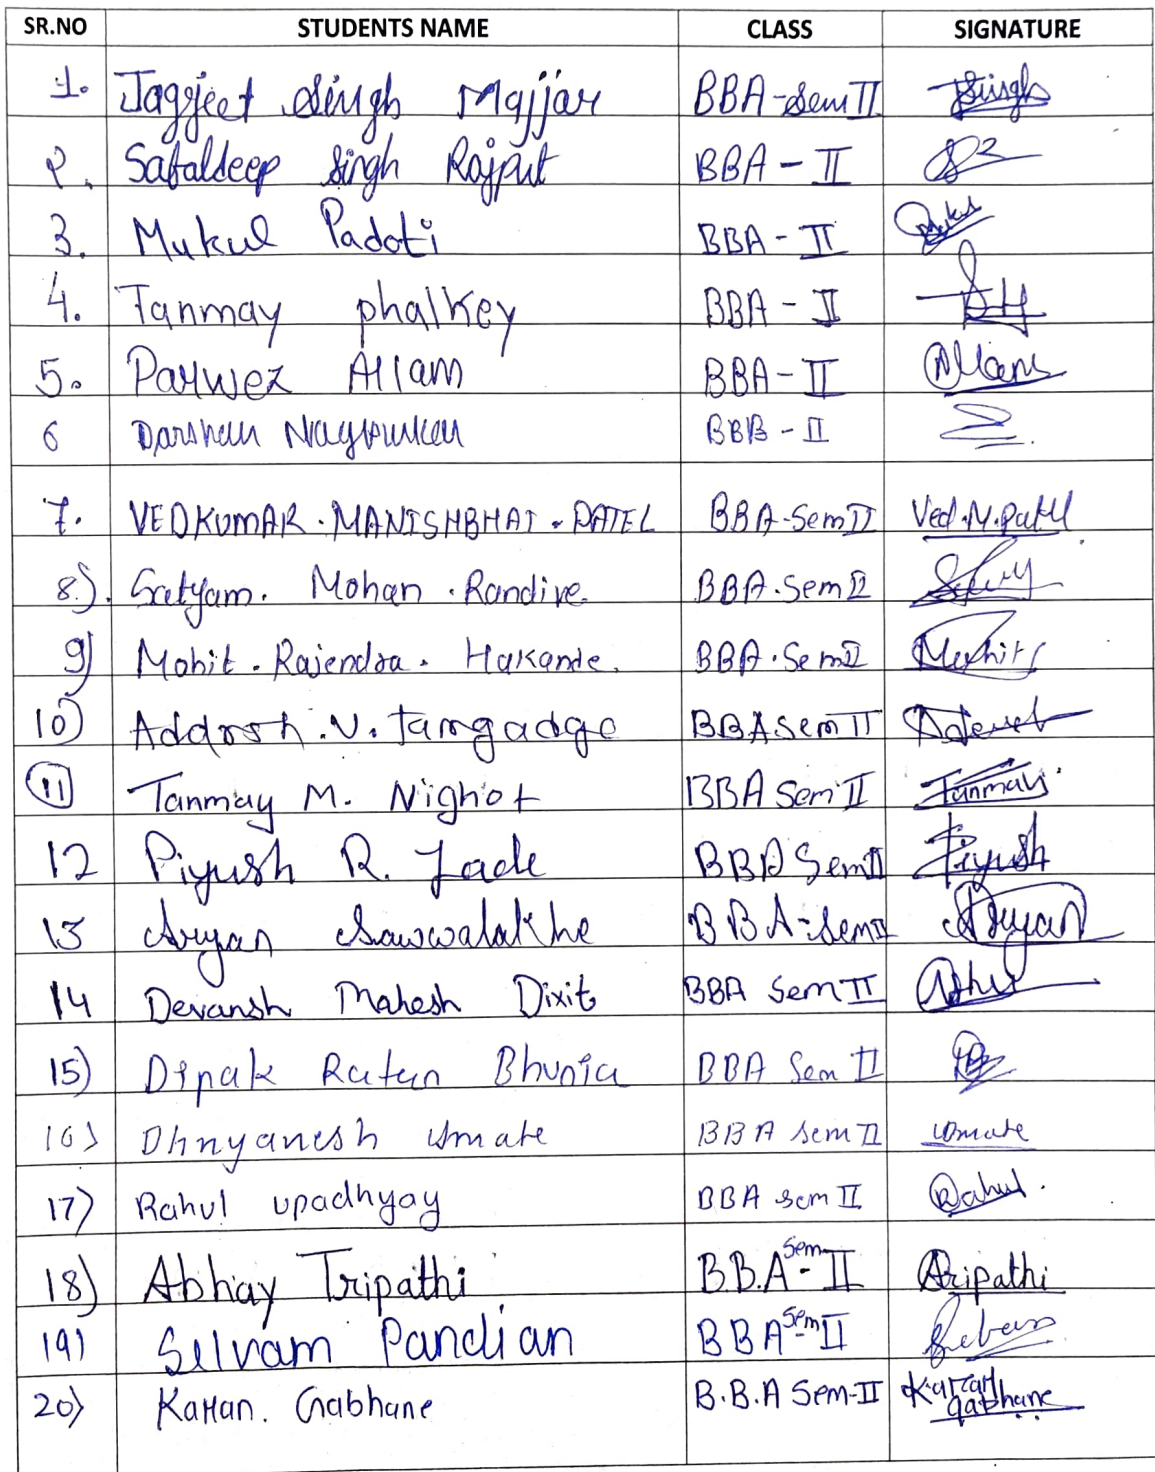 SR.NO STUDENTS NAME CLASS SIGNATURE
1. Jagjeet Singh Majjar BBA-Sem II Singh
2. Safaldeep Singh Rajput BBA - II
3. Mukul Padoti BBA - II Mukul
4. Tanmay phalkey BBA - II
5. Parwez Allam BBA - II Allam
6 Darshan Nagpurkar BBB - II
7. VEDKUMAR. MANISHBHAI. PATEL BBA-Sem II Ved.M.Patel
8). Satyam. Mohan. Randive. BBA.Sem II
9) Mohit. Rajendra. Hakande. BBA.Sem II Mohit
10) Addrsh.V. Tamgadge BBA Sem II
11 Tanmay M. Nighot BBA Sem II Tanmay
12 Piyush R. Zade BBA Sem II Piyush
13 Aryan Sawwalakhe BBA-Sem II Aryan
14 Devansh Mahesh Dixit BBA Sem II
15) Dipak Ratan Bhunia BBA Sem II
16) Dhnyanesh Umate BBA Sem II Umate
17) Rahul upadhyay BBA Sem II Rahul.
18) Abhay Tripathi B.B.A Sem - II Aripathi
19) Selvam Pandian BBA Sem - II
20) Karran. Gabhane B.B.A Sem-II Karran
gabhane